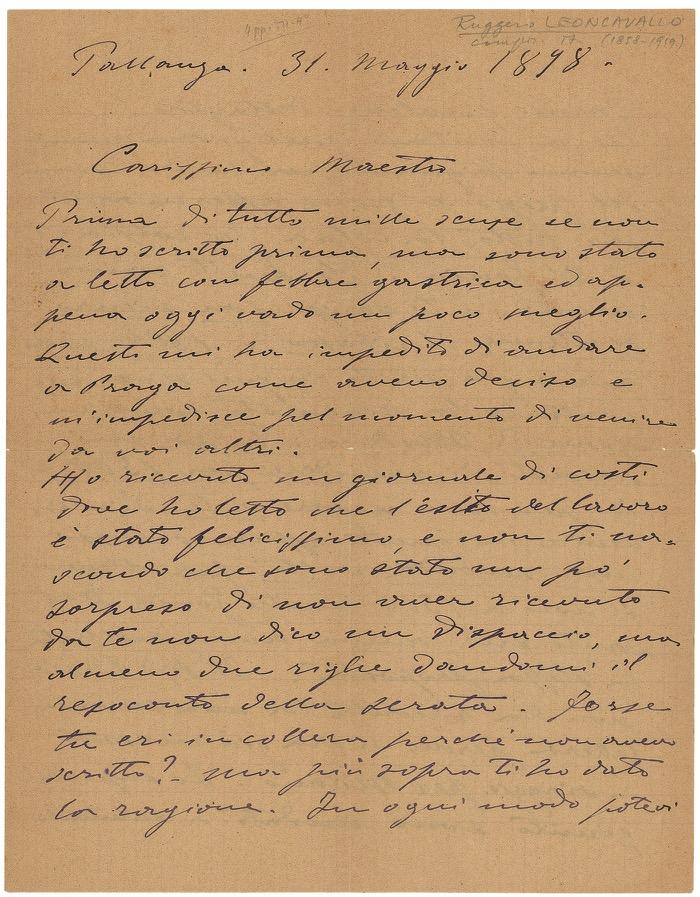 Ruggero LEONCAVALLO
compos. IT. (1858-1919)
Pallanza. 31. Maggio 1898.
Carissimo Maestro
Prima di tutto mille scuse se non
ti ho scritto prima, ma sono stato
a letto con febbre gastrica ed ap-
pena oggi vado un poco meglio.
Questi mi ha impedito di andare
a Praga come avevo deciso e
m'impedisce pel momento di venire
da voi altri.
Ho ricevuto un giornale di costì
dove ho letto che l'esito del lavoro
è stato felicissimo, e non ti na-
scondo che sono stato un po'
sorpreso di non aver ricevuto
da te non dico un dispaccio, ma
almeno due righe dandomi il
resoconto della serata. Forse
tu eri in collera perché non avevo
scritto? ma più sopra ti ho dato
la ragione. In ogni modo potevi